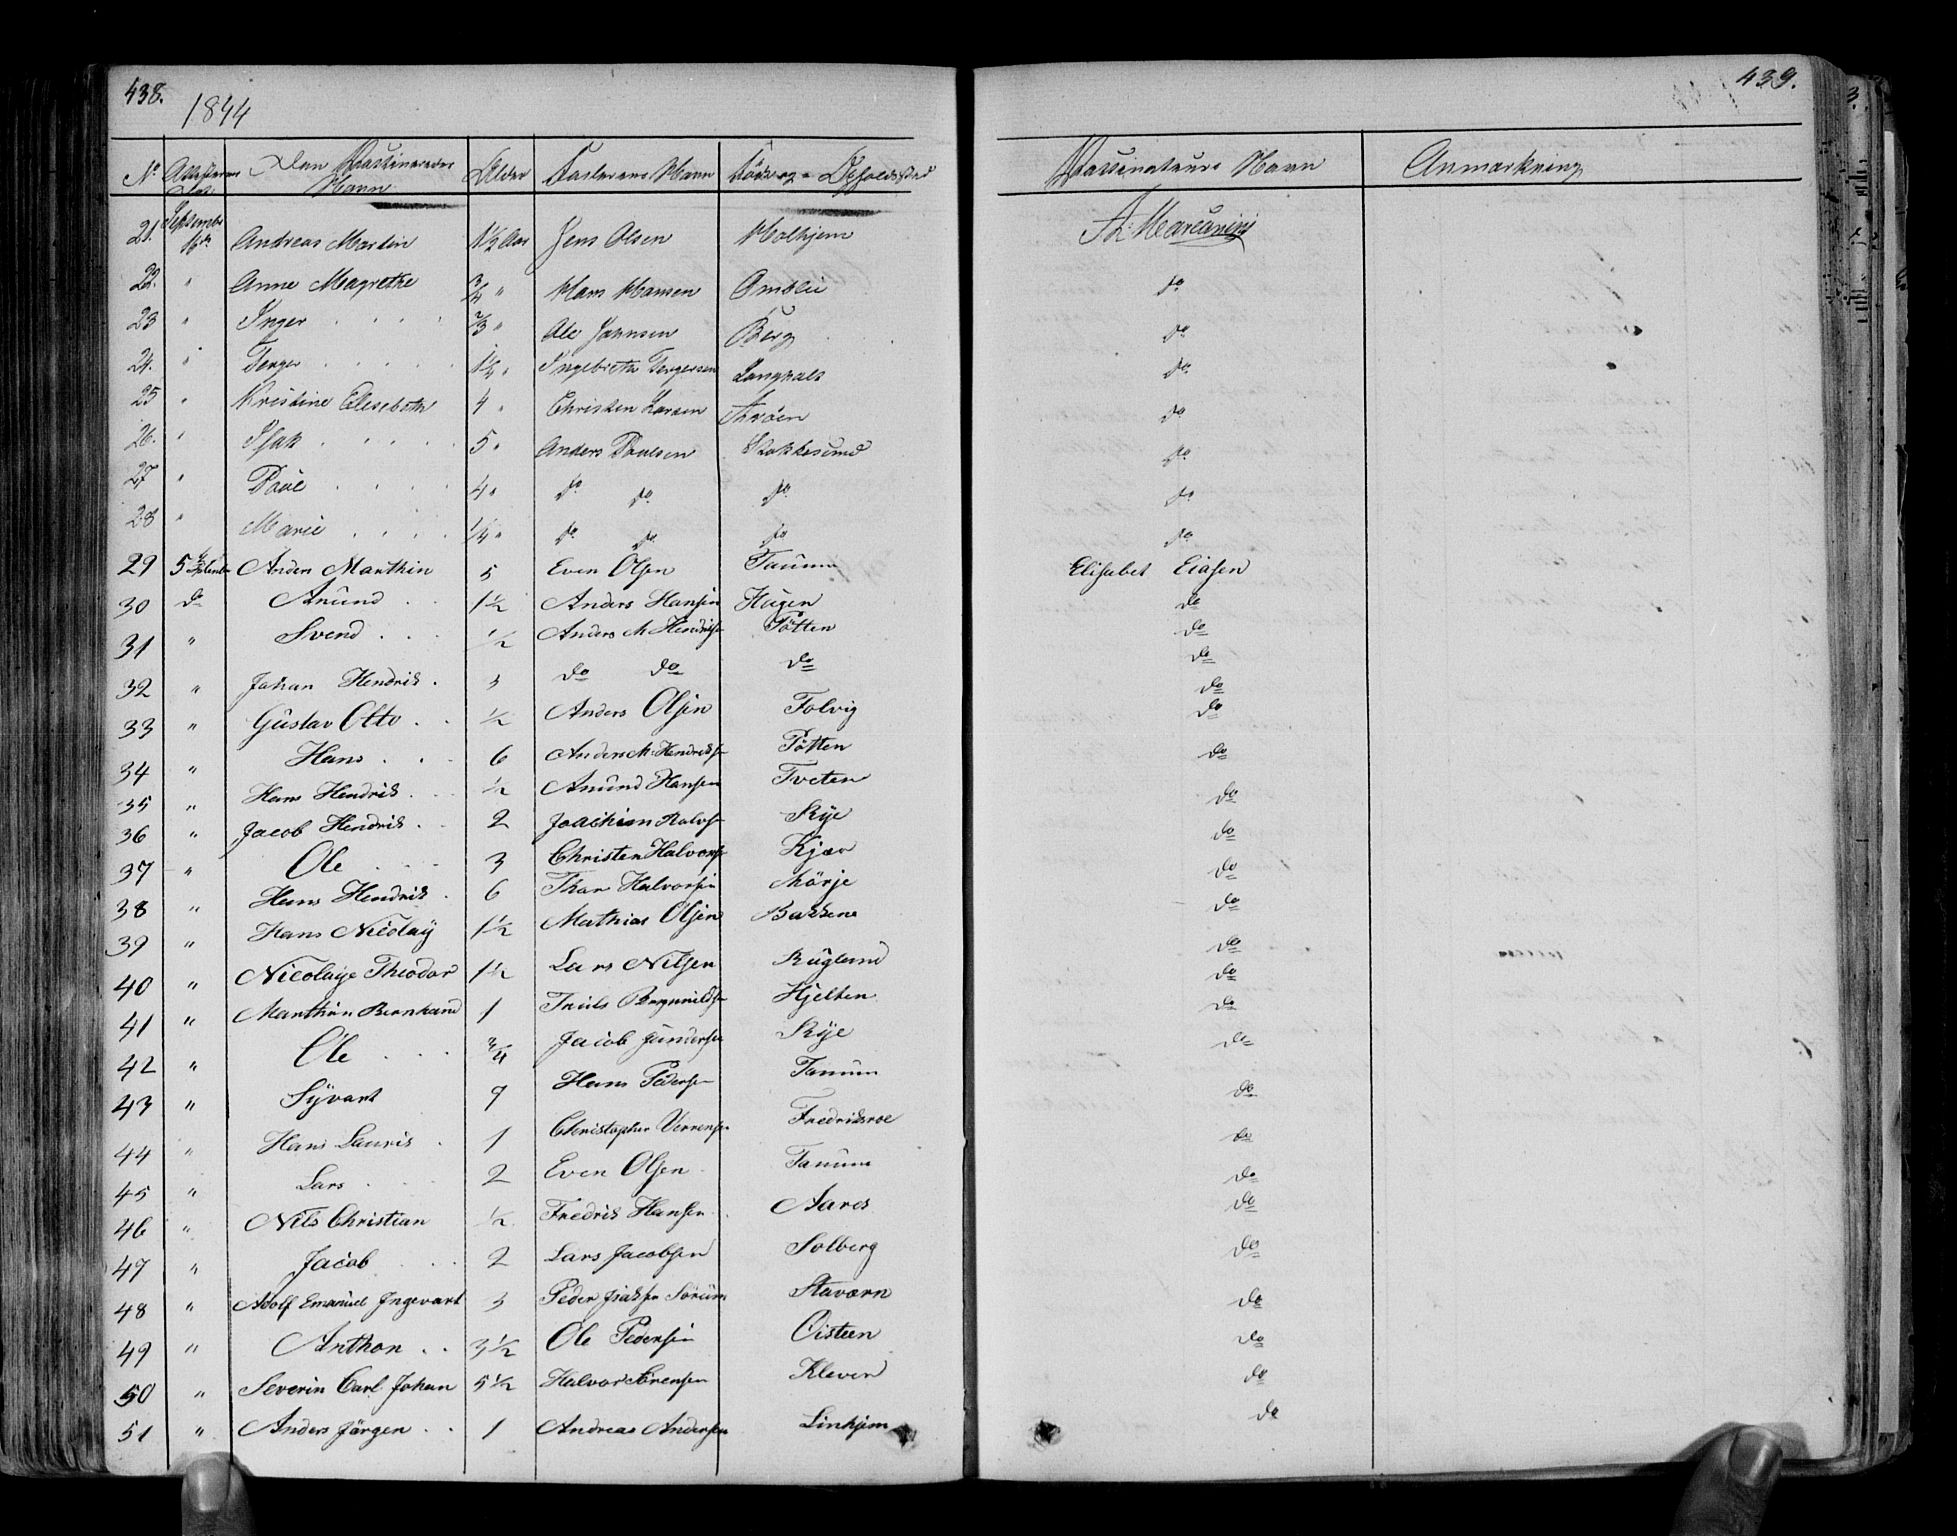 438.
1844
439.
No Attestens Dat. Den Vaccineredes Navn Alder Faderens Navn Føde og Opholdssted Vaccinateurs Navn Anmærkning
21. September 16de Andreas Martin 1½ Aar Jens Olsen Holhjem
22. " Anne Magrethe ¾ " Hans Hansen Omblie do
23 " Inger 2/3 " Ole Johnsen Berg do
24. " Terger 1½ " Ingebreth Tergersen Langhals do
25 " Kristine Elisebeth 4 " Christen Larsen do
26. " Isak 5 " Anders Poulsen Stokkesund do
27 " Poul 4 " do do do do
28 " Marie ¼ " do do do do
29 5 September Anders Marthin 5 Even Olsen Tanum Elisabet Eiasen
30 do Anund 1½ Anders Hansen Haugen do
31 " Svend ½ Anders M Hendriks Pøtten do
32 " Johan Hendrik 3 do do do do
33 " Gustav Otto ½ Anders Olsen Folvig do
34 " Hans 6 Anders M. Hendriks Pøtten do
35 " Hans Hendrik ½ Anund Hansen Tveten do
36 " Jacob Hendrik 2 Joachim Halvs Rye do
37 " Ole 3 Christen Halvors Kjær do
38 " Hans Hendrik 6 Thor Halvorsen Mørje do
39 " Hans Nicolay 1½ Mathias Olsen Bakkene do
40 " Nicolaye Theodor 1½ Lars Nilsen Ruglund do
41 " Marthin Bernhard 1 Truls Hjelten do
42 " Ole ¾ Jacob Gundersen Rye do
43 " Syvart 9 Hans Pedersen Tanum do
44 " Hans Lauris 1 Christopher Fredriksroe do
45 " Lars 2 Even Olsen Tanum do
46 " Nils Christian ½ Fredrik Hansen Aares do
47 " Jacob 2 Lars Jacobsen Solberg do
48 " Adolf Emanuel Ingevart 3 Peder Sørum Staværn do
49 " Anthon 3½ Ole Pedersen Oisteen do
50 " Severin Carl Johan 5½ Halvor Sørensen Kleven do
51 " Anders Jørgen 1 Andreas Andersen Linhjem do